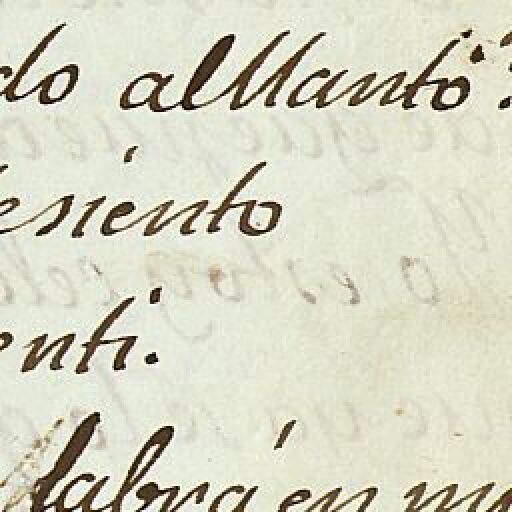 do al llanto
esiento
enti.
labra en mi